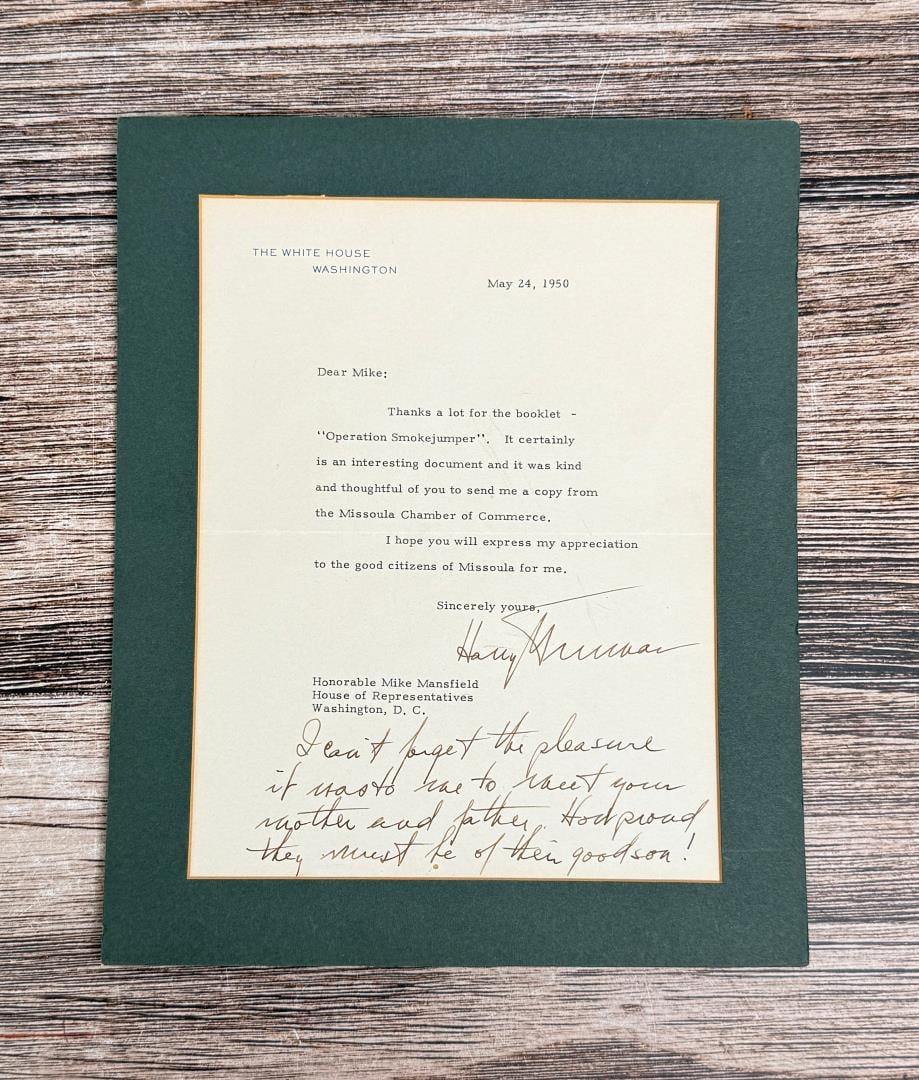 THE WHITE HOUSE
WASHINGTON
May 24, 1950
Dear Mike:
Thanks a lot for the booklet -
"Operation Smokejumper". It certainly
is an interesting document and it was kind
and thoughtful of you to send me a copy from
the Missoula Chamber of Commerce.
I hope you will express my appreciation
to the good citizens of Missoula for me.
Sincerely yours,
Harry Truman
Honorable Mike Mansfield
House of Representatives
Washington, D. C.
I can't forget the pleasure
it was to me to meet your
mother and father. How proud
they must be of their good son!